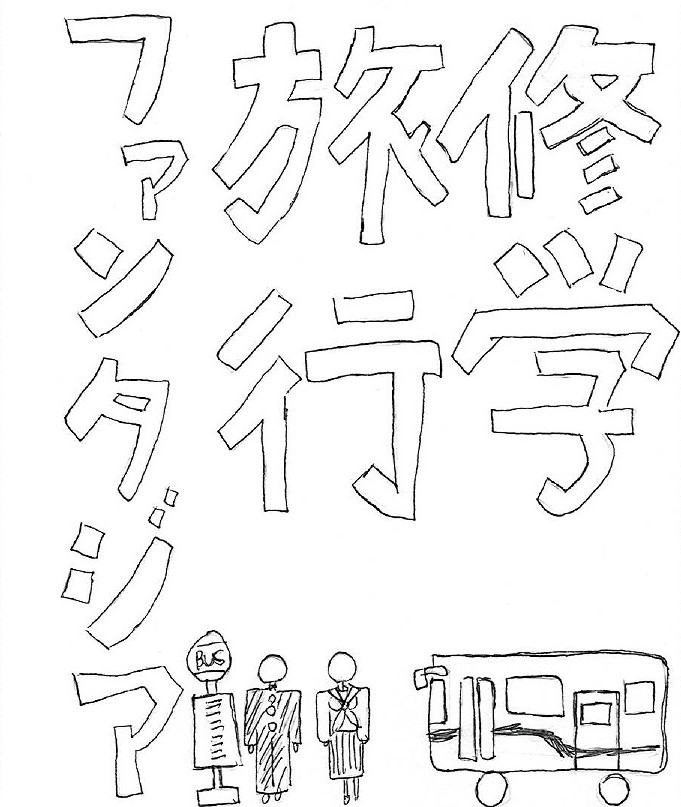 修学
旅行
ファンタジア
BUS